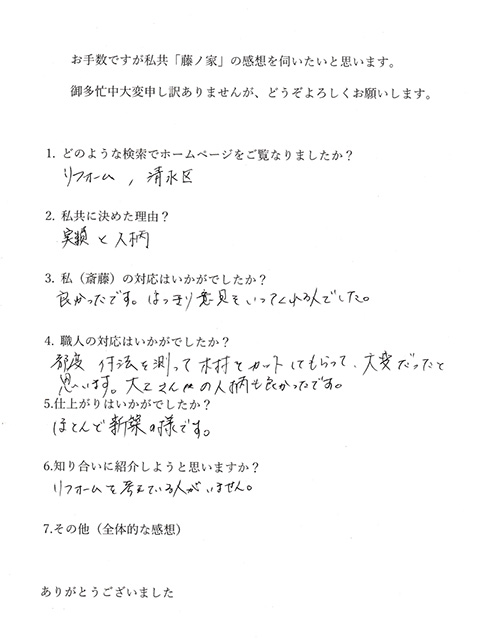 お手数ですが私共「藤ノ家」の感想を伺いたいと思います。
御多忙中大変申し訳ありませんが、どうぞよろしくお願いします。
1. どのような検索でホームページをご覧なりましたか？
リフォーム , 清水区
2. 私共に決めた理由？
実績と人柄
3. 私（斎藤）の対応はいかがでしたか？
良かったです。はっきり意見をいってくれる人でした。
4. 職人の対応はいかがでしたか？
都度 寸法を測って木材をカットしてもらって、大変だったと
思います。大工さんの人柄も良かったです。
5.仕上がりはいかがでしたか？
ほとんど新築の様です。
6.知り合いに紹介しようと思いますか？
リフォームを考えている人がいません。
7.その他（全体的な感想）
ありがとうございました